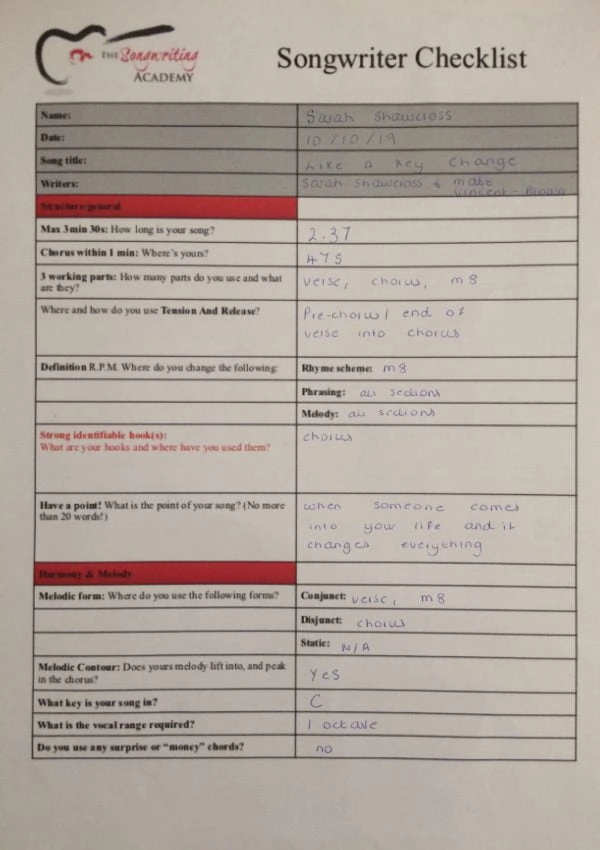 THE Songwriting
ACADEMY
Songwriter Checklist
Name: Sarah Shawcross
Date: 10/10/19
Song title: Like A Key Change
Writers: Sarah Shawcross & mate
Vincent-Brown
Structure/general
Max 3min 30s: How long is your song? 2.37
Chorus within 1 min: Where's yours? 47s
3 working parts: How many parts do you use and what verse, chorus, m8
are they?
Where and how do you use Tension And Release? Pre-chorus/ end of
verse into chorus
Definition R.P.M. Where do you change the following: Rhyme scheme: m8
Phrasing: all sections
Melody: all sections
Strong identifiable hook(s): chorus
What are your hooks and where have you used them?
Have a point! What is the point of your song? (No more when someone comes
than 20 words!) into your life and it
changes everything
Harmony & Melody
Melodic form: Where do you use the following forms? Conjunct: verse, m8
Disjunct: chorus
Static: N/A
Melodic Contour: Does yours melody lift into, and peak Yes
in the chorus?
What key is your song in? C
What is the vocal range required? 1 octave
Do you use any surprise or "money" chords? no